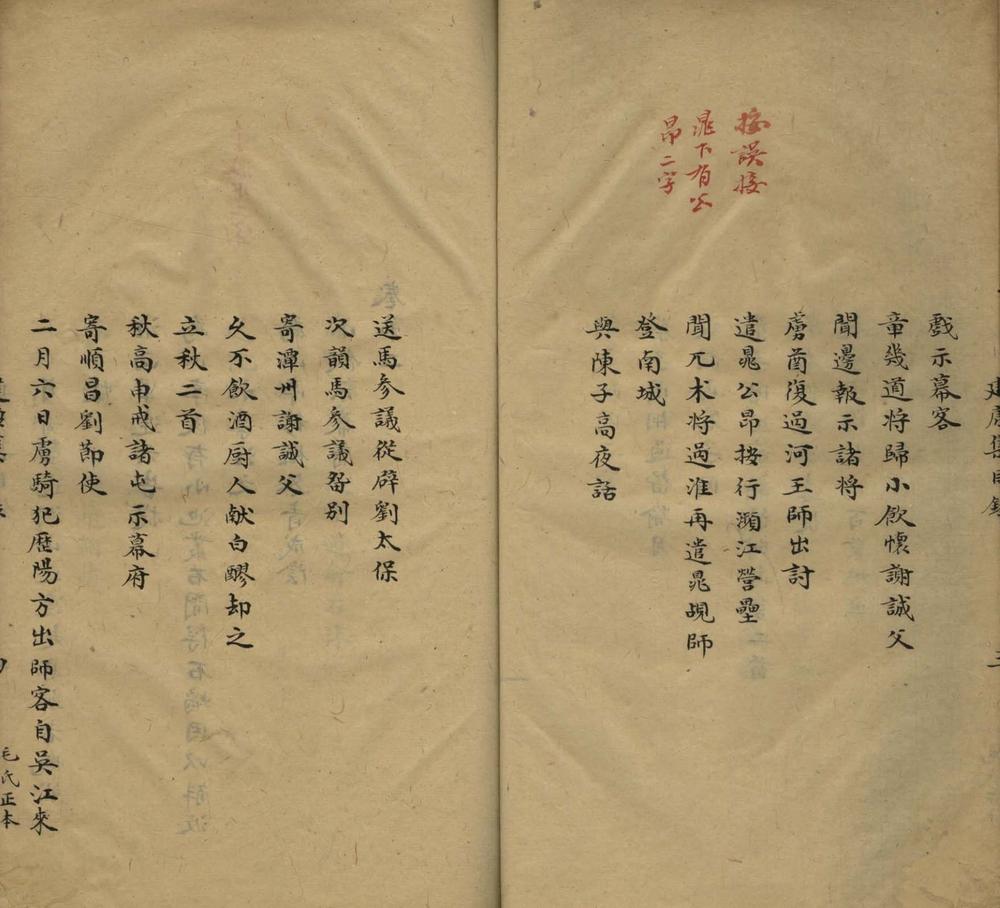 按誤按
晁下有公
昂二字
戲示幕客
章幾道將歸小飲懷謝誠父
聞邊報示諸將
虜酋復過河王師出討
遣晁公昂按行瀕江營壘
聞兀术將過淮再遣晁覘師
登南城
與陳子高夜話
送馬參議從辟劉太保
次韻馬參議畱別
寄潭州謝誠父
久不飲酒厨人献白醪却之
立秋二首
秋高申戒諸屯示幕府
寄順昌劉節使
二月六日虜騎犯歷陽方出師客自吳江來
毛氏正本